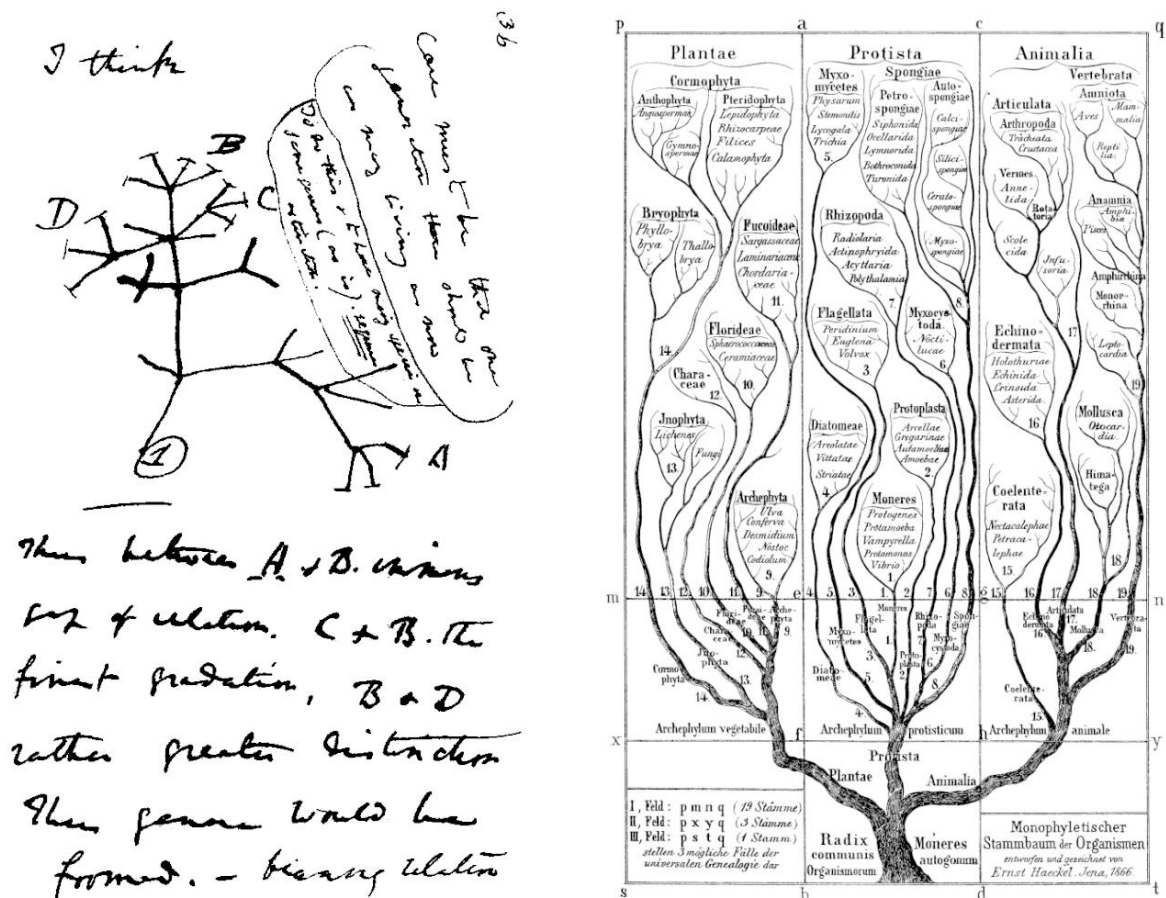 I think
36
Case must be that one
generation then should be
as many living as now
To do this & to have many species in
same genus (as is) requires
extinction.
B
D
C
A
1
Thus between A & B. immense
gap of relation. C & B. the
finest gradation, B & D
rather greater distinction
Thus genera would be
formed. — bearing relation
p a c q
Plantae
Cormophyta
Anthophyta
Angiospermae
Gymno-
spermae
Pteridophyta
Lepidophyta
Rhizocarpeae
Filices
Calamophyta
Bryophyta
Phyllo-
brya
Thallo-
brya
Fucoideae
Sargassaceae
Laminariaceae
Chordaria-
ceae
11.
14.
Florideae
Sphaerococcaceae
Ceramiaceae
10.
Chara-
ceae
12.
Jnophyta
Lichenes
Fungi
13.
Archephyta
Ulva
Conferva
Desmidium
Nostoc
Codiolum
9.
Protista
Myxo-
mycetes
Physarum
Stemonitis
Lycogala
Trichia
5.
Spongiae
Petro-
spongiae
Siphonida
Ocellarida
Lymnorida
Bothroconida
Turonida
Auto-
spongiae
Calci-
spongiae
Silici-
spongiae
Cerato-
spongiae
Myxo-
spongiae
8.
Rhizopoda
Radiolaria
Actinophryida
Acyttaria
Polythalamia
7.
Flagellata
Peridinium
Euglena
Volvox
3.
Myxocys-
toda.
Nocti-
lucae
6.
Diatomeae
Areolatae
Vittatae
Striatae
4.
Protoplasta
Arcellae
Gregarinae
Automoebae
Amoebae
2.
Moneres
Protogenes
Protamoeba
Vampyrella
Protomonas
Vibrio
1.
Animalia
Vertebrata
Amniota
Aves
Mam-
malia
Repti-
lia.
Articulata
Arthropoda
Tracheata
Crustacea
Vermes
Anne-
lida
Rota-
toria
Scole-
cida
Jnfu-
soria
17.
Anamnia
Amphi-
bia
Pisces
Amphirrhina
Monor-
rhina
Lepto-
cardia
19.
Echino-
dermata
Holothuriae
Echinida
Crinoida
Asterida.
16.
Mollusca
Otocar-
dia
Hima-
tega
18.
Coelente-
rata
Nectacalephae
Petraca-
lephae
15.
m 14. 13. 12. 10. 11. 9. e 4. 5. 3. 1. 2. 7. 6. 8. g 15. 16. 17. 18. 19. n
Cormo-
phyta
14.
Jno-
phyta
13.
Chara-
ceae
12.
Flori-
deae
10.
Fucoi-
deae
11.
Arche-
phyta
9.
Diato-
meae
4.
Myxo-
mycetes
5.
Flagel-
lata
3.
Moneres
1.
Proto-
plasta
2.
Rhizo-
poda
7.
Myxocys-
toda
6.
Spon-
giae
8.
Coelente-
rata
15.
Echino-
dermata
16.
Articulata
17.
Mollusca
18.
Vertebra-
ta
19.
Archephylum vegetabile
Archephylum protisticum
Archephylum animale
x f h y
Plantae
Protista
Animalia
I, Feld: p m n q (19 Stämme)
II, Feld: p x y q (3 Stämme)
III, Feld: p s t q (1 Stamm)
stellen 3 mögliche Fälle der
universalen Genealogie dar
Radix
communis
Organismorum
Moneres
autogonum
Monophyletischer
Stammbaum der Organismen
entworfen und gezeichnet von
Ernst Haeckel. Jena, 1866.
s b d t